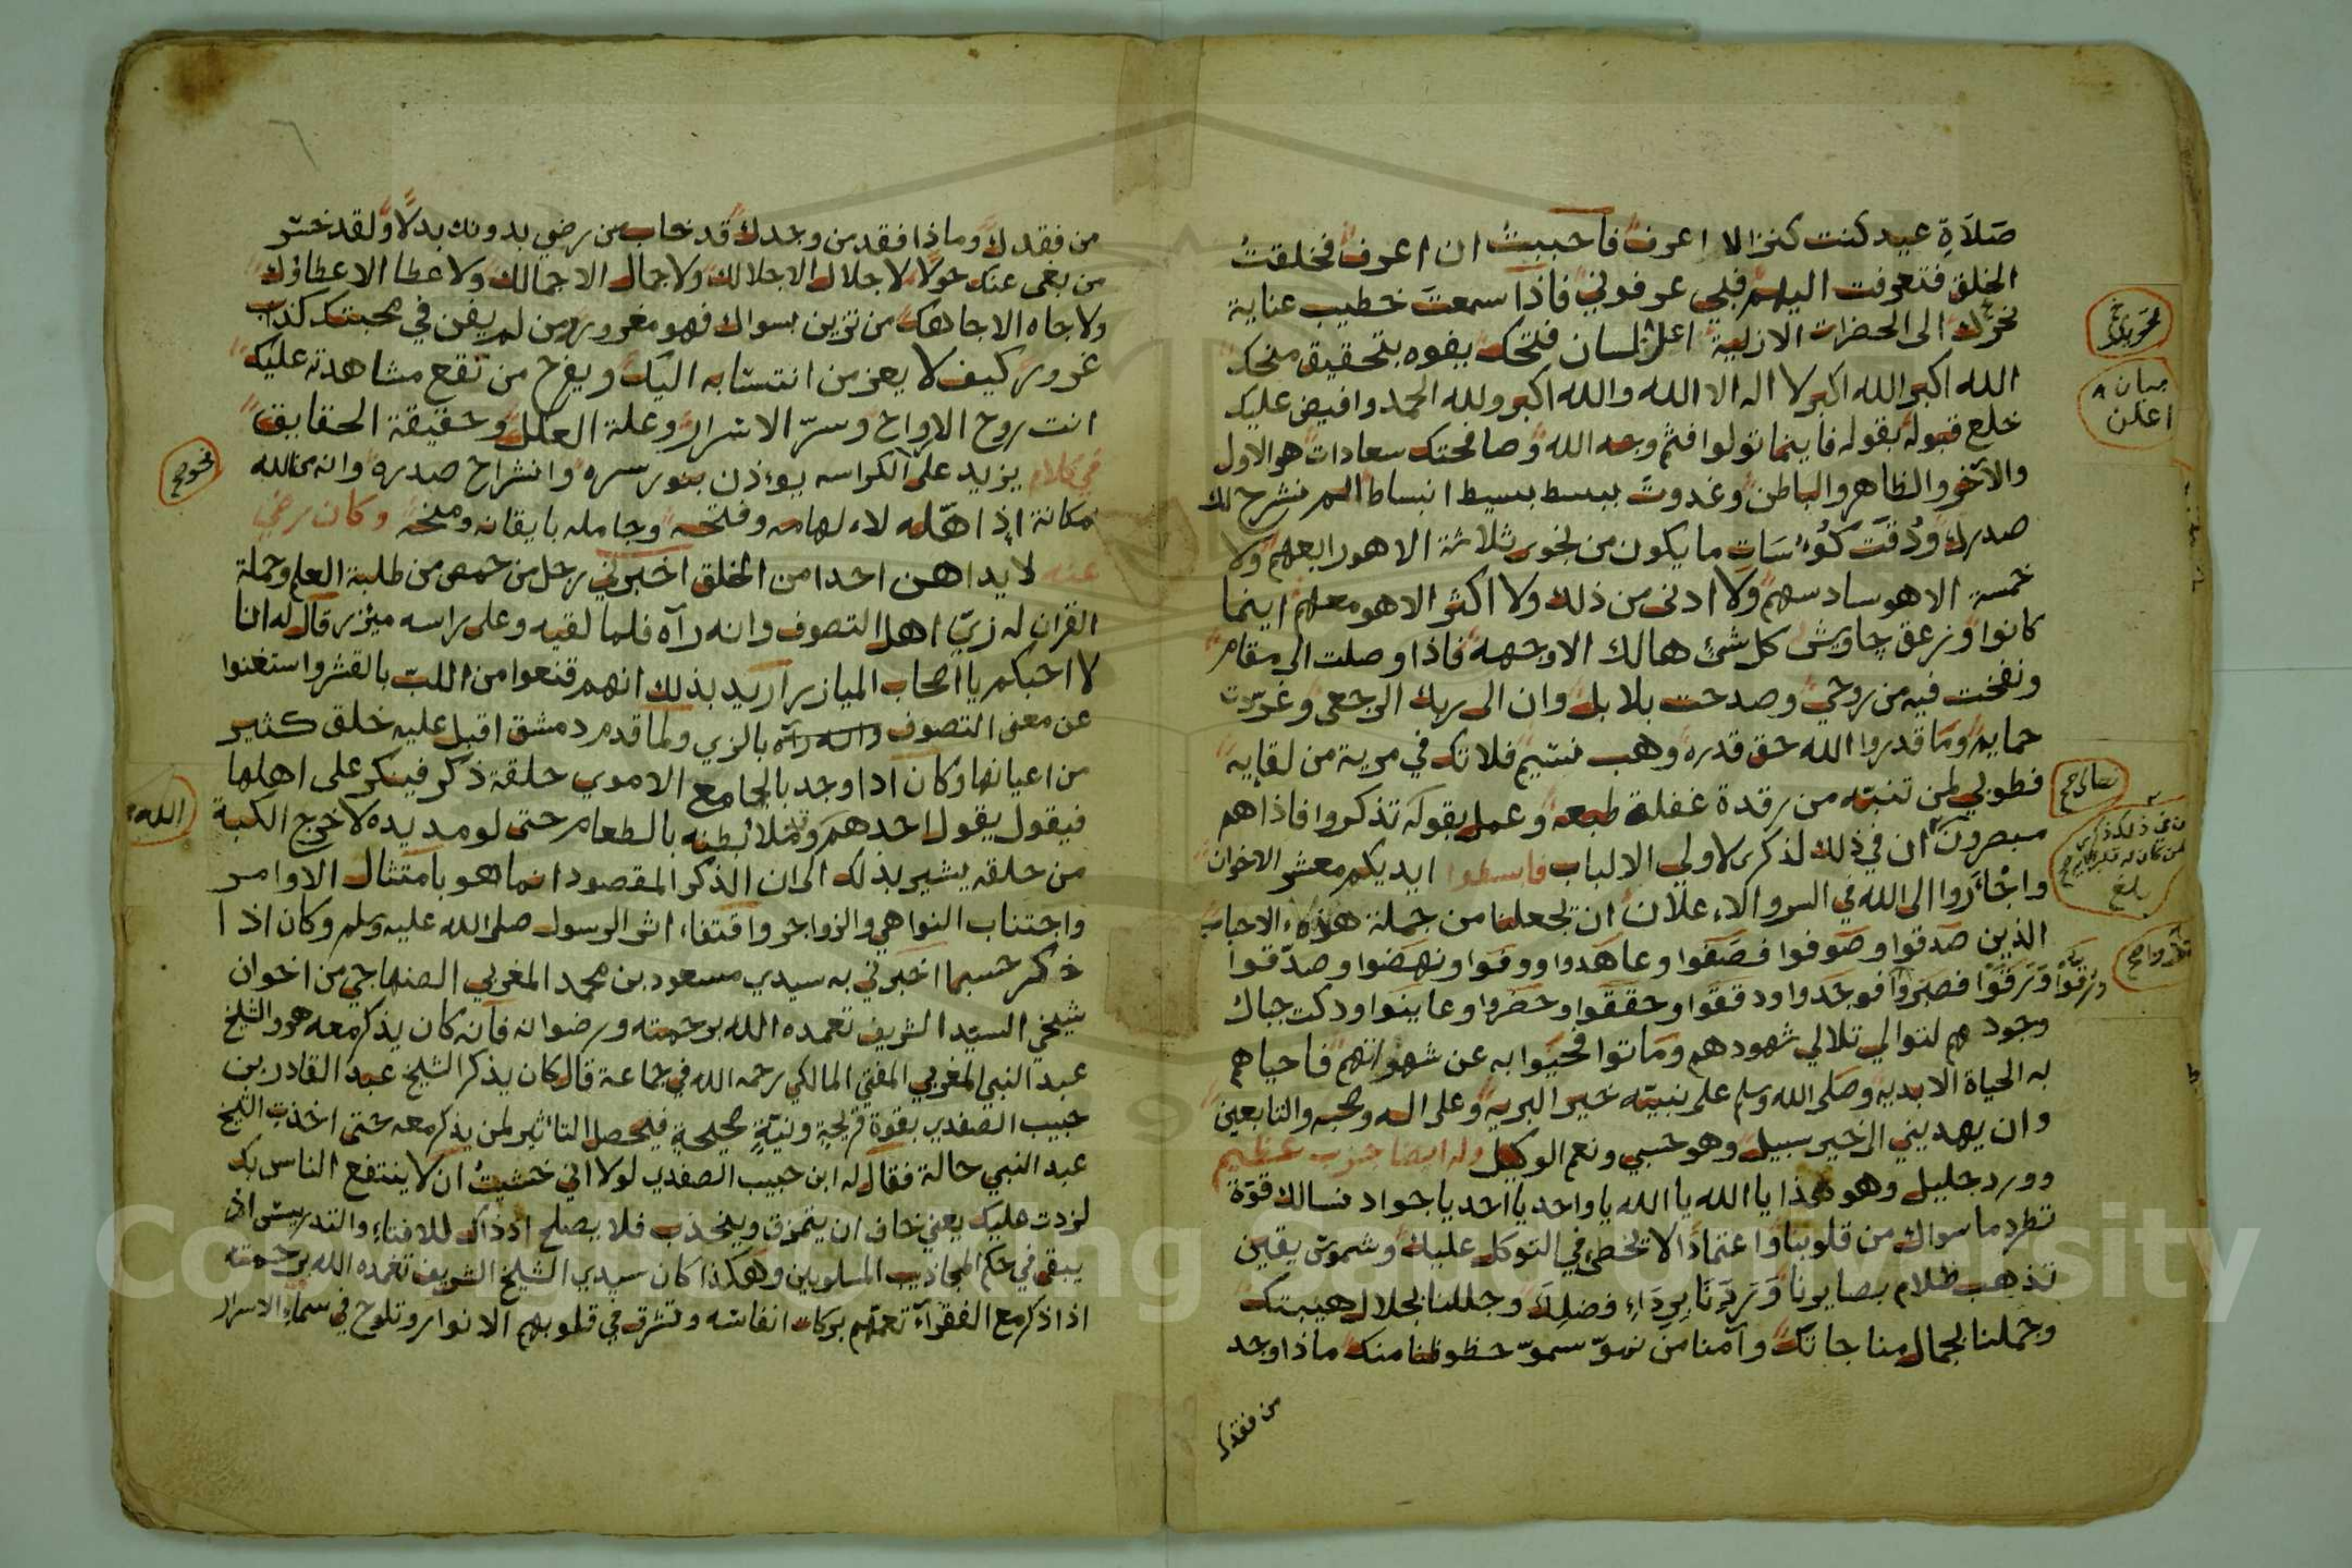 صَلَاةِ عيد كنت كنزا لا اعرف فاحببتُ ان اعرف فخلقتُ
الخلق فتعرفت اليهم فبي عرفوني فاذا سمعتَ خطيب عناية
الى الحضرات الازلية اعلن لسان فتحك يفوه بتحقيق منحك
الله اكبر الله اكبر لا اله الا الله والله اكبر ولله الحمد وافيض عليك
خلع قبوله بقوله فاينما تولوا فثم وجه الله وصافحتك سعادات هو الاول
والآخر والظاهر والباطن وغدوتَ ببسط بسيط انبساط الم نشرح لك
صدرك وذقت كؤسات ما يكون من نجوى ثلاثة الا هو رابعهم ولا
خمسة الا هو سادسهم ولا ادنى من ذلك ولا اكثر الا هو معهم اينما
كانوا وزعق چاويش كل شئ هالك الا وجهه فاذا وصلت الى مقام
ونفخت فيه من روحي وصدحت بلابل وان الى ربك الرجعى وغردت
حمايم وما قدروا الله حق قدره وهب نسيم فلا تك في مرية من لقايه
فطوبي لمن تنبّه من رقدة غفلة طبعه وعمل بقوله تذكروا فاذا هم
مبصرون ان في ذلك لذكرى لاولي الالباب فابسطوا ايديكم معشر الاخوان
واجْأروا الى الله في السر والاعلان ان تجعلنا من جملة هؤلاء الاحباب
الذين صدقوا وصوفوا فصَفَوا وعاهدوا ووفوا ونهضوا وصدّقوا
وَرَقَوْا فصبروا فوجدوا ودققوا وحققوا وحضروا وعاينوا ودكت جبال
وجودهم لتوالي تلالي شهودهم وماتوا فحيوا به عن شهواتهم فاحياهم
به الحياة الابدية وصلى الله وسلم على نبيّه خير البرية وعلى اله وصحبه والتابعين
وان يهديني الى خير سبيل وهو حسبي ونعم الوكيل وله ايضا حزب عظيم
وورد جليل وهو هذا يا الله يا الله يا واحد يا احد يا جواد نسالك قوة
تطرد ما سواك من قلوبنا واعتمادا لا يخطي في التوكل عليك وشموس يقين
تذهب ظلام بصايرنا وَتَرَدِّنَا بِرِدَاءِ فضلِكَ وجللنا بجلال هيبتك
وجملنا بجمال مناجاتك وآمنا من سموّ حظوظنا منك ماذا وجد
من فقدك
بيان
اعلن
بلغ
من فقدك وماذا فقد من وجدك قد خاب من رضي بدونك بدلا ولقد خسر
من بغى عنك حولا لا جلال الا جلالك ولا جمال الا جمالك ولا عطا الا عطاؤك
ولا جاه الا جاهك من تزين بسواك فهو مغرور ومن لم يفن في محبتك كذب
غرور كيف لا يعز من انتسابه اليك ويفرح من تقع مشاهدته عليك
انت روح الارواح وسرّ الاسرار وعلة العلل وحقيقة الحقايق
في كلام يزيد على الكراسه يوءذن بنور سره وانشراح صدره وانه من الله
بمكانة اذ اهّله لالهامه وفتحه وجامله بايقانه ومنحه وكان رضي
عنه لا يداهن احدا من الخلق اخبرني رجل من حمص من طلبة العلم وحملة
القران له زيّ اهل التصوف وانه رآه فلما لقيه وعلى راسه ميزر قال له انا
لا احبكم يا اصحاب الميازر اريد بذلك انهم قنعوا من اللبّ بالقشر واستغنوا
عن معنى التصوف بالزي ولما قدم دمشق اقبل عليه خلق كثير
من اعيانها وكان اذا وجد بالجامع الاموي حلقة ذكر فينكر على اهلها
فيقول يقول احدهم وقد ملا بطنه بالطعام حتى لو مد يده لاخرج الكبة
من حلقه يشير بذلك الى ان الذكر المقصود انما هو بامتثال الاوامر
واجتناب النواهي والزواجر واقتفاء اثر الرسول صلى الله عليه وسلم وكان اذا
ذكر حسبما اخبرني به سيدي مسعود بن محمد المغربي الصنهاجي من اخوان
شيخي السيّد الشريف تغمده الله برحمته ورضوانه فانه كان يذكر معه هو والشيخ
عبد النبي المغربي المفتي المالكي رحمه الله في جماعة قال كان يذكر الشيخ عبد القادر بن
حبيب الصفدي بقوة قريحة ونيّةٍ صحيحةٍ فيحصل التاثير لمن يذكر معه حتى اخذت الشيخ
عبد النبي حالة فقال له ابن حبيب الصفدي لولا اني خشيتُ ان لا ينتفع الناس بك
لزدت عليك يعني خاف ان يتمزق وينجذب فلا يصلح اذ ذاك للافتاء والتدريس اذ
يبقى في حكم المجاذيب المسلوبين وهكذا كان سيدي الشيخ الشريف تغمده الله برحمته
اذا ذكر مع الفقراء تعمّهم بركات انفاسه وتشرق في قلوبهم الانوار وتلوح في سماء الاسرار
الله
Copyright © King Saud University